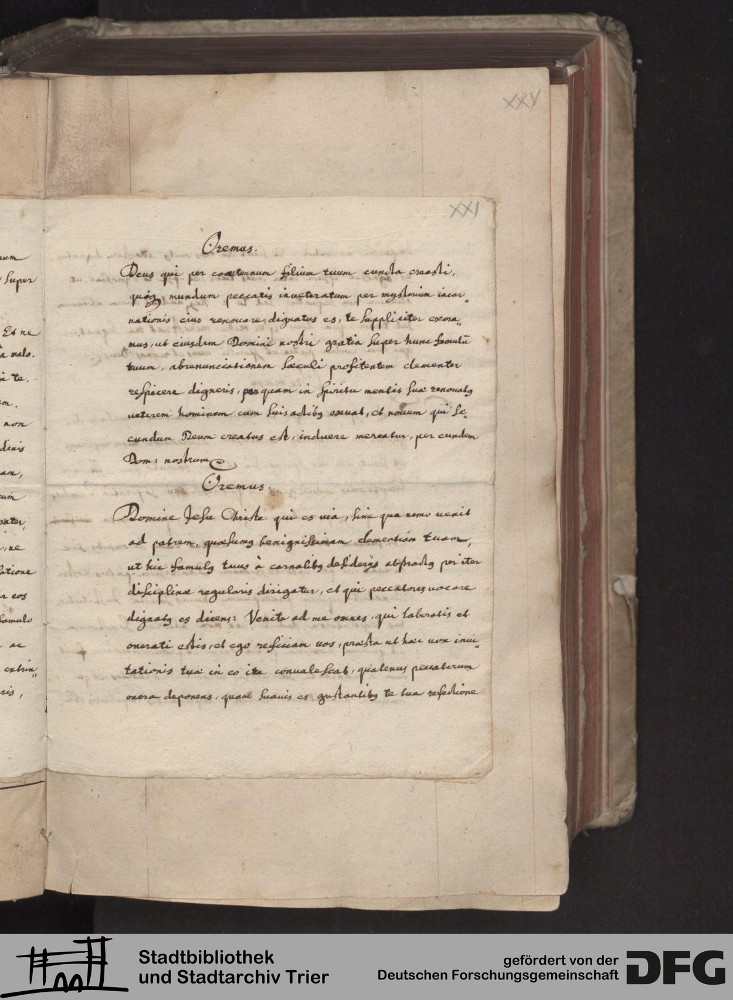 XXV
XXI
Oremus.
Deus qui per coæternum filium tuum cuncta creasti,
quiq3 mundum peccatis inveteratum per mysterium incar„
nationis eius renovare dignatus es, te suppliciter exora„
mus, ut eiusdem Domini nostri gratia super hunc famulū
tuum, abrenunciationem sæculi profitentem clementer
respicere digneris, per quam in spiritu mentis suæ renovatꝰ
veterem hominem cum suis actibꝰ exuat, et novum qui se„
cundum Deum creatus est, induere mereatur, per eundem
Dom: nostrum
Oremus.
Domine Jesu Christe qui es via, sine qua nemo venit
ad patrem, quæsumꝰ benignissimam clementiam tuam,
ut hic famulꝰ tuus à carnalibꝰ desiderijs abstractꝰ per iter
disciplinæ regularis dirigatur, et qui peccatores vocare
dignatꝰ es dicens: Venite ad me omnes, qui laboratis et
onerati estis, et ego reficiam vos, præsta ut hæc vox invi„
tationis tuæ in eo ita convalescat, quatenus peccatorum
onera deponens, quam suavis es gustantibꝰ te tua refectione
num
super
Et ne
n te.
em.
non
am,
ne
eos
famulo
ac
Stadtbibliothek
und Stadtarchiv Trier
gefördert von der
Deutschen Forschungsgemeinschaft
DFG